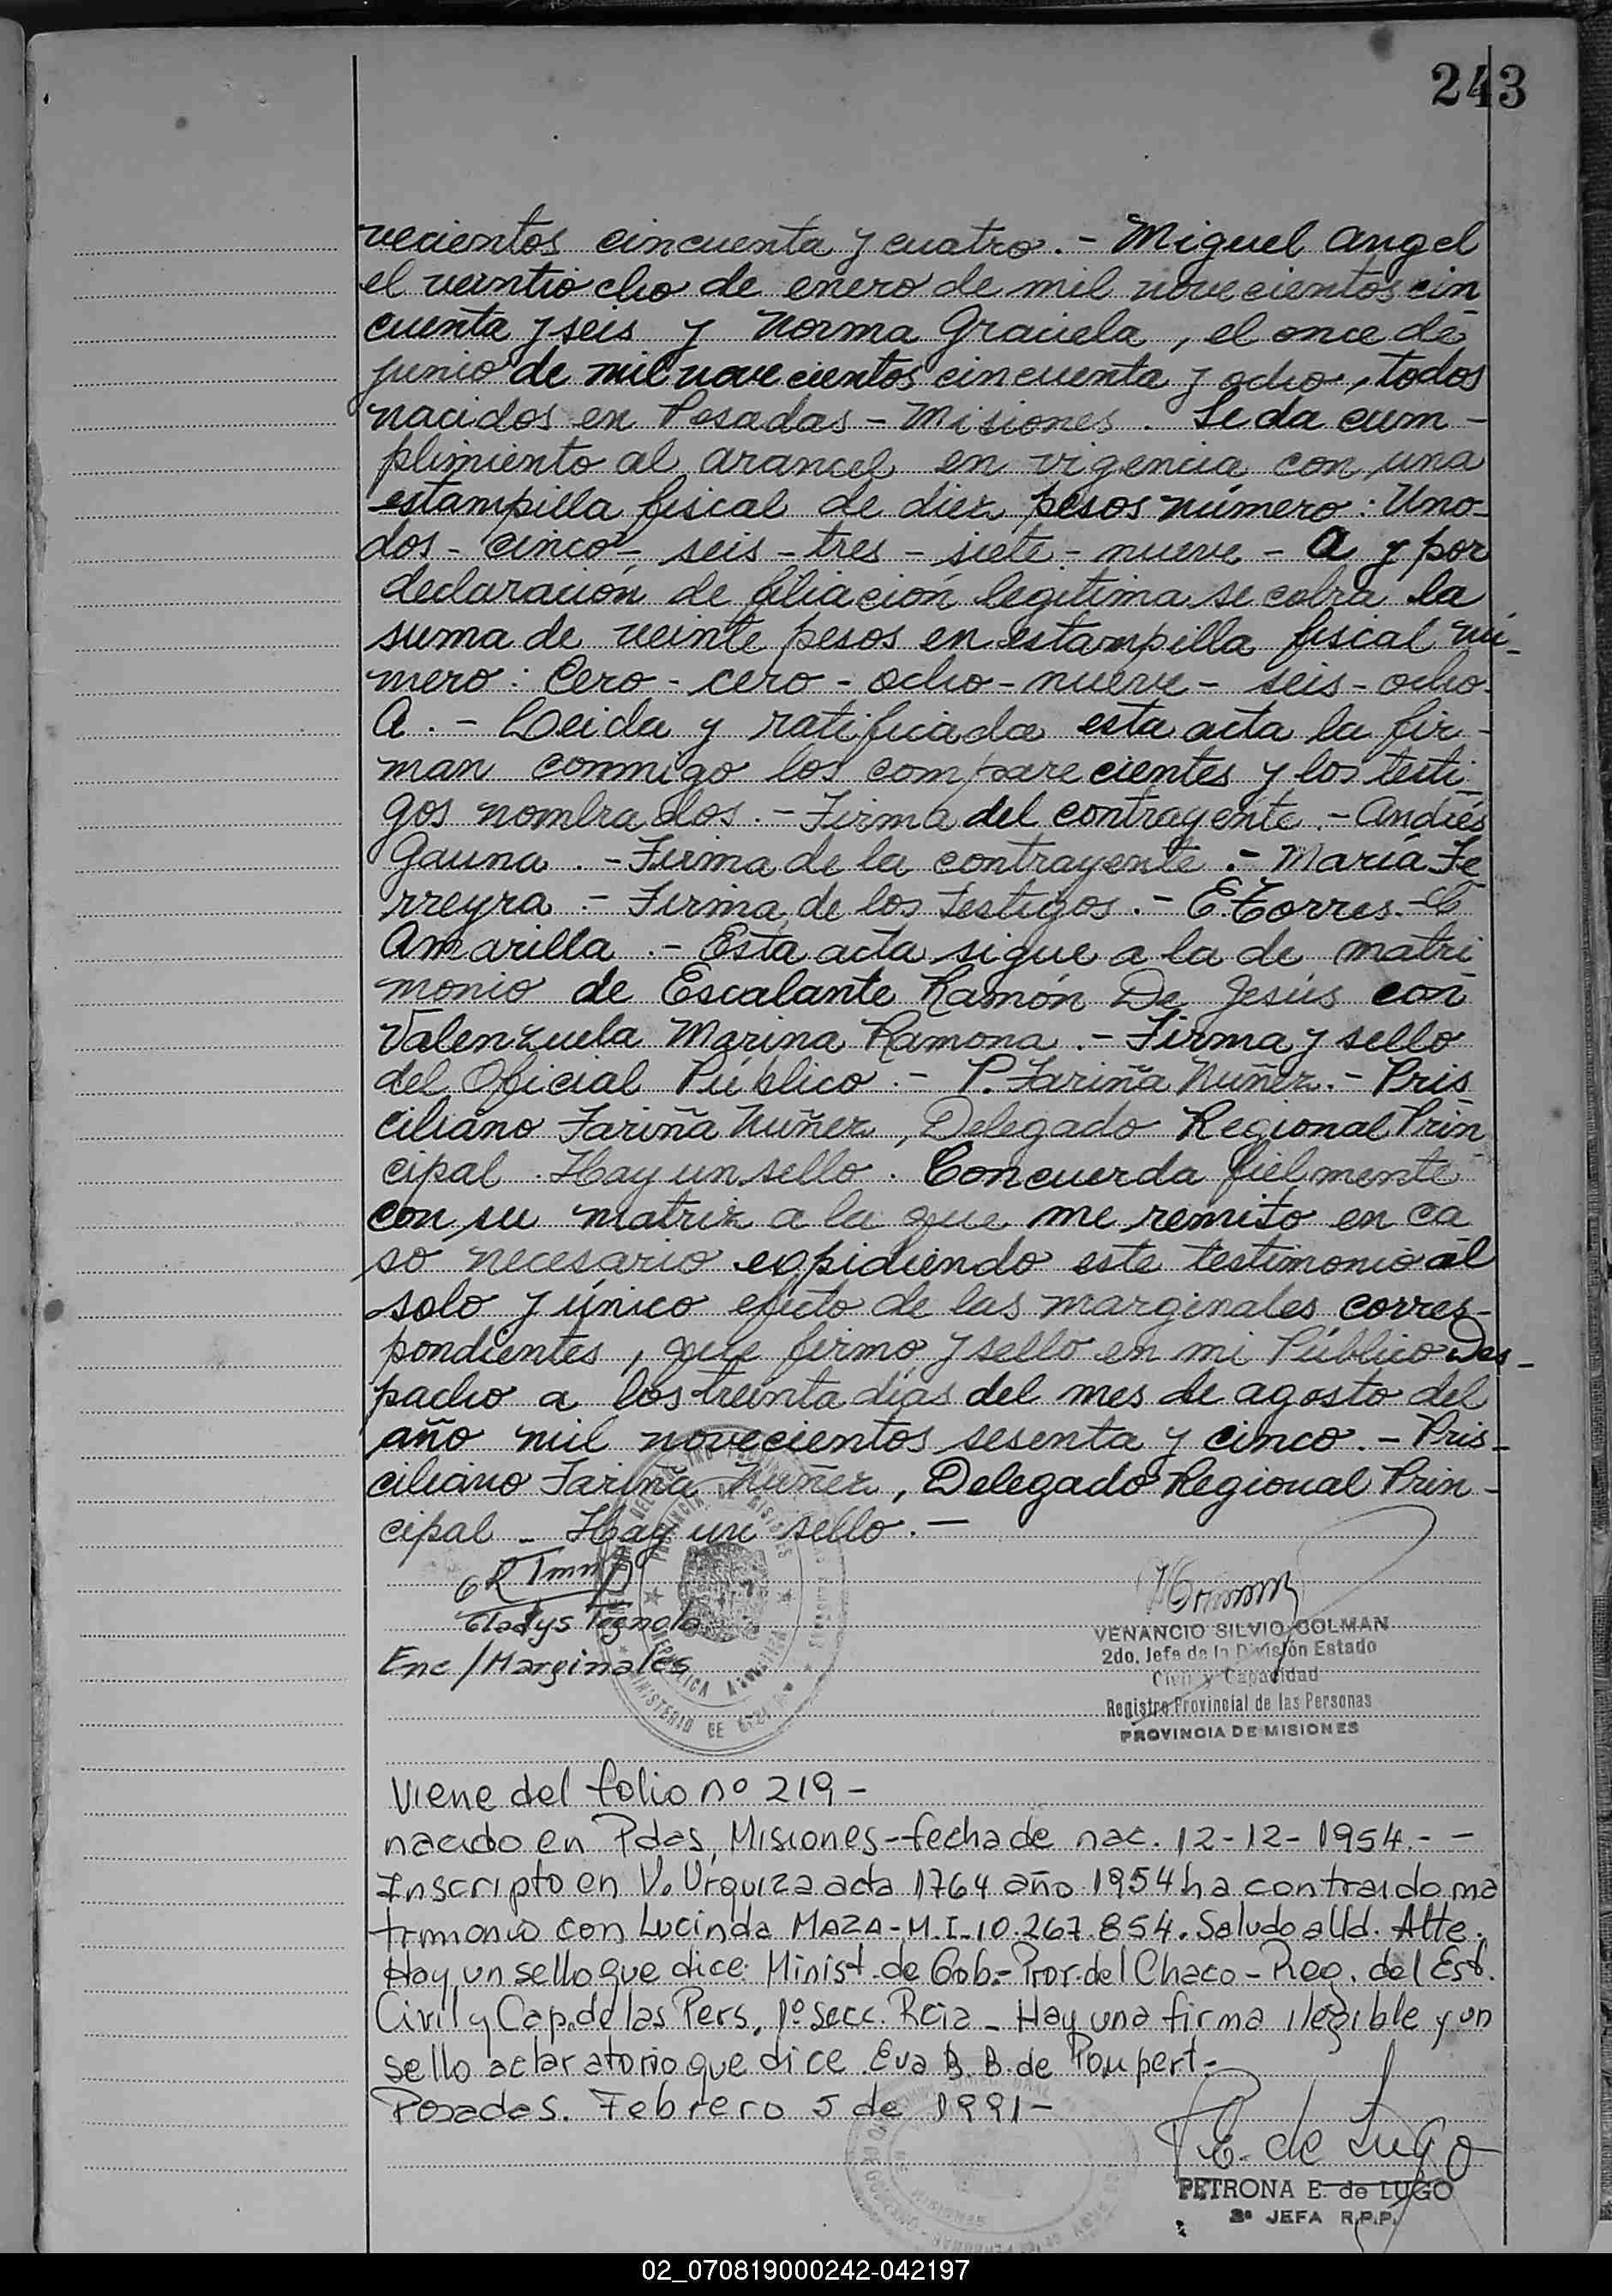 243
vecientos cincuenta y cuatro.- Miguel Angel
el veintiocho de enero de mil novecientos cin
cuenta y seis y Norma Graciela, el once de
junio de mil novecientos cincuenta y ocho, todos
nacidos en Posadas - Misiones. Se da cum-
plimiento al arancel en vigencia con una
estampilla fiscal de diez pesos número: Uno-
dos - cinco - seis - tres - siete - nueve - A y por
declaración de filiación legitima se cobra la
suma de veinte pesos en estampilla fiscal nú-
mero: Cero - cero - ocho - nueve - seis - ocho.
A.- Leida y ratificada esta acta la fir-
man conmigo los comparecientes y los testi-
gos nombrados.- Firma del contrayente.- Andrés
Gauna.- Firma de la contrayente.- María Fe
rreyra.- Firma de los testigos.- E. Torres.- C
Amarilla.- Esta acta sigue a la de matri
monio de Escalante Ramón De Jesús con
Valenzuela Marina Ramona.- Firma y sello
del Oficial Público.- P. Fariña Nuñez.- Pris
ciliano Fariña Nuñez, Delegado Regional Prin
cipal. Hay un sello. Concuerda fielmente
con su matriz a la que me remito en ca
so necesario expidiendo este testimonio al
solo y único efecto de las marginales corres-
pondientes, que firmo y sello en mi Público Des-
pacho a los treinta días del mes de agosto del
año mil novecientos sesenta y cinco.- Pris-
ciliano Fariña Nuñez, Delegado Regional Prin-
cipal - Hay un sello.-
Gladys
Enc/Marginales
PROVINCIA DE MISIONES
REPUBLICA ARGENTINA
MINISTERIO DE
VENANCIO SILVIO COLMAN
2do. Jefe de la División Estado
Civil y Capacidad
Registro Provincial de las Personas
PROVINCIA DE MISIONES
Viene del folio nº 219-
nacido en Pdas, Misiones - fecha de nac. 12-12-1954.- -
Inscripto en V. Urquiza acta 1764 año 1954 ha contraido ma
trimonio con Lucinda MAZA - M.I. 10.267.854. Saludo a Ud. Atte.
Hay un sello que dice: Minist. de Gob.- Prov. del Chaco - Reg. del Est.
Civil y Cap. de las Pers. 1º Secc. Rcia - Hay una firma ilegible y un
sello aclaratorio que dice Eva B. B. de Poupert.-
Posadas. Febrero 5 de 1991-
E. de Lugo
PETRONA E. de LUGO
2ª JEFA R.P.P.
02_070819000242-042197